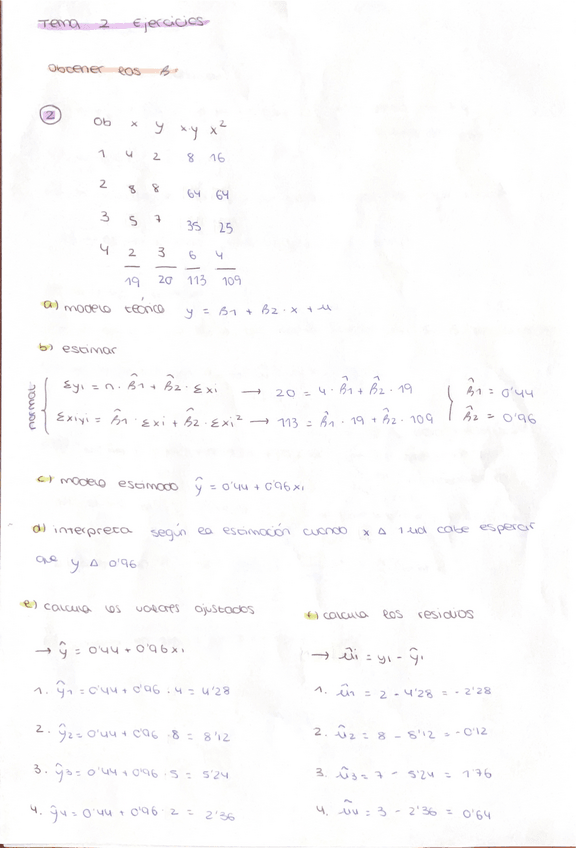 Tema 2 Ejercicios
Obtener los β
2
Ob x y xy x²
1 4 2 8 16
2 8 8 64 64
3 5 7 35 25
4 2 3 6 4
19 20 113 109
a) modelo teórico y = β1 + β2 · x + u
b) estimar
normal
Σyi = n · β̂1 + β̂2 · Σxi → 20 = 4 · β̂1 + β̂2 · 19 β̂1 = 0'44
Σxiyi = β̂1 · Σxi + β̂2 · Σxi² → 113 = β̂1 · 19 + β̂2 · 109 β̂2 = 0'96
c) modelo estimado ŷ = 0'44 + 0'96xi
d) interpreta según la estimación cuando x Δ 1 ud cabe esperar
que y Δ 0'96
e) calcula los valores ajustados
→ ŷ = 0'44 + 0'96xi
1. ŷ1 = 0'44 + 0'96 · 4 = 4'28
2. ŷ2 = 0'44 + 0'96 · 8 = 8'12
3. ŷ3 = 0'44 + 0'96 · 5 = 5'24
4. ŷ4 = 0'44 + 0'96 · 2 = 2'36
f) calcula los residuos
→ ûi = yi - ŷi
1. û1 = 2 - 4'28 = -2'28
2. û2 = 8 - 8'12 = -0'12
3. û3 = 7 - 5'24 = 1'76
4. û4 = 3 - 2'36 = 0'64